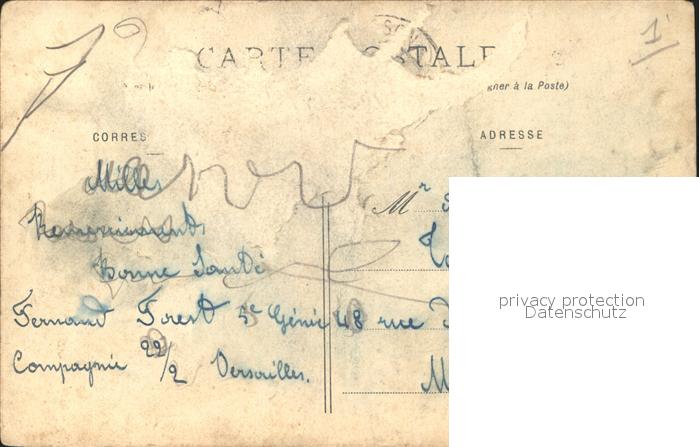 CARTE POSTALE
gner à la Poste)
CORRES
ADRESSE
Milles
Remerciements
Bonne Santé
Mr
Fernand Forest 5e Génie
48 rue
Compagnie 22/2 Versailles.
M
privacy protection
Datenschutz